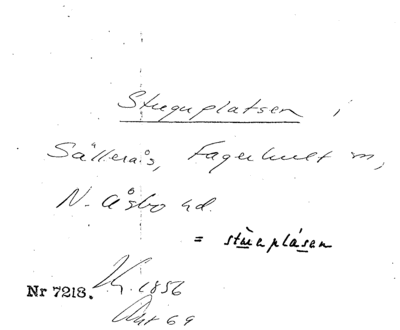 Stuguplatsen i
Sällerås, Fagerhult sn,
N. Åsbo hd.
= stùeplásen
Nr 7218. Kr. 1856
Akt 69